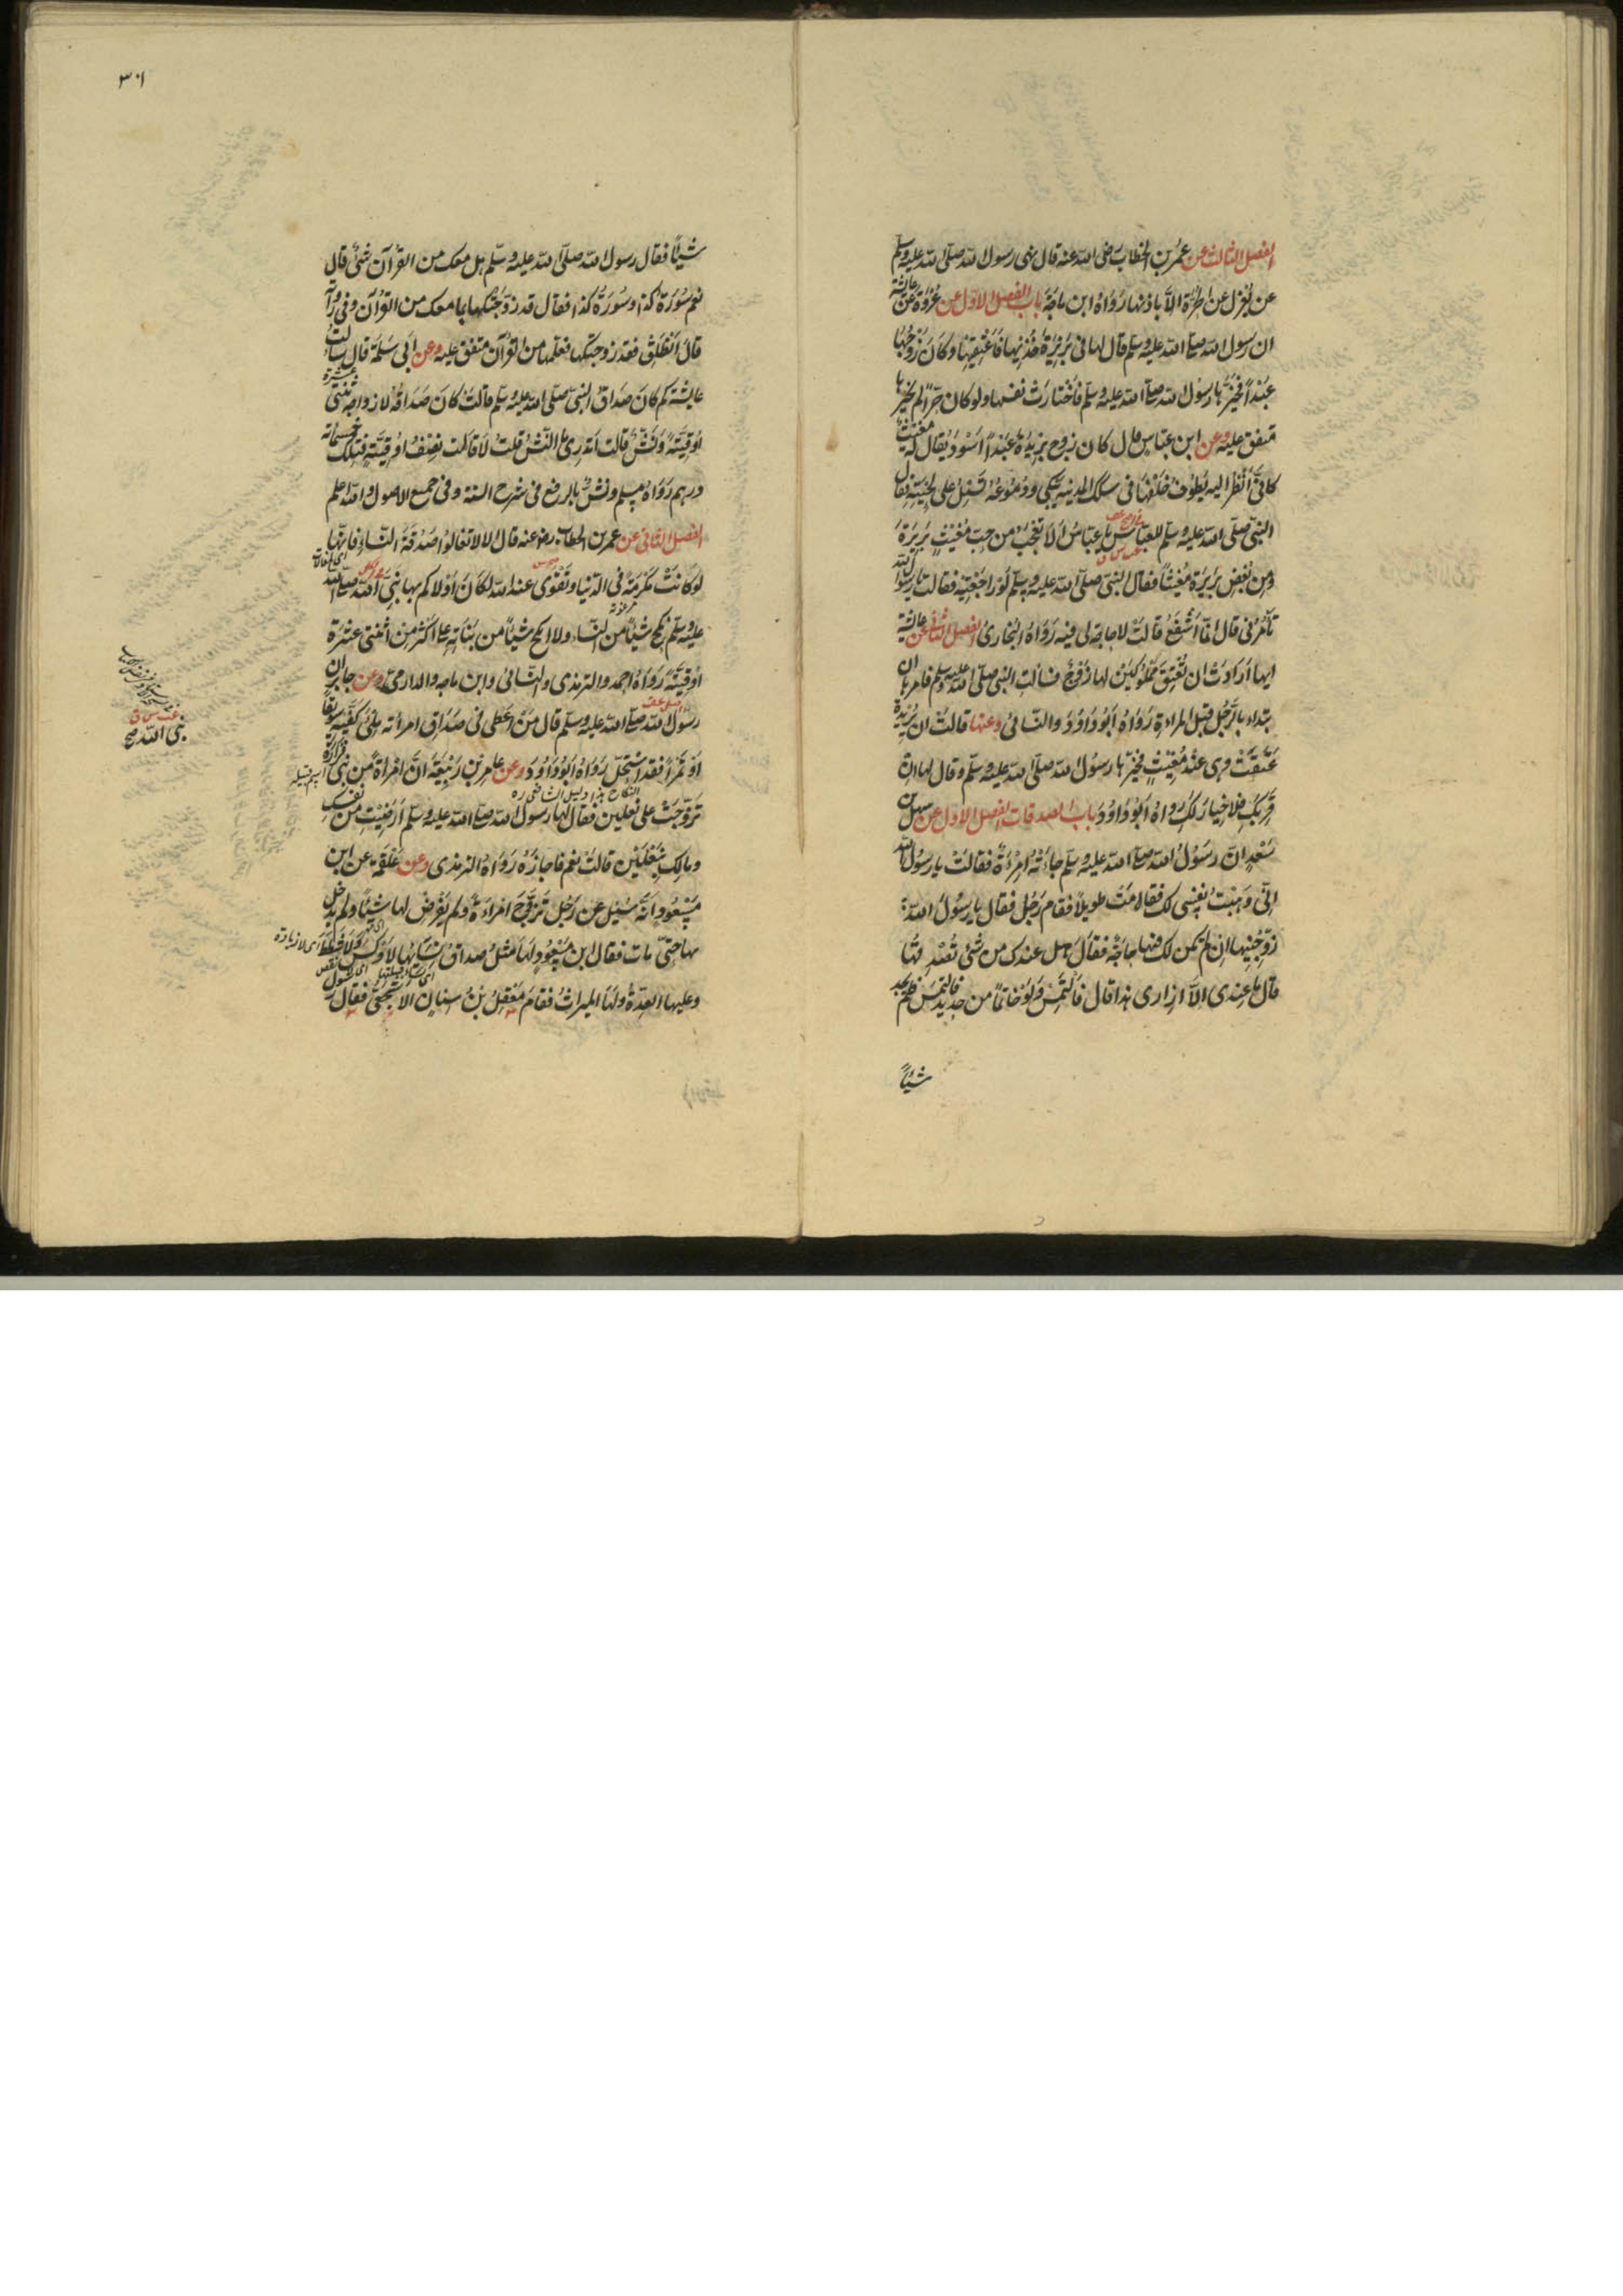 الفصل الثالث عن عمر بن الخطاب رضى الله عنه قال نهى رسول الله صلى الله عليه وسلم
عن يُعْزَل عن الحرّة الا باذنها رَوَاهُ ابن ماجَة باب الفصل الاول عن عُرْوَة عن عائشة
ان رسول الله صلى الله عليه وسلم قال لها فى بَرِيْرَة خُذيها فاَعْتِقيها وكانَ زَوْجُها
عَبْداً فخَيَّرها رسول الله صلى الله عليه وسلم فَاخْتارَتْ نفسها ولو كان حرّاً لم يُخيّرها
متفق عليه وعن ابن عباس قال كان زوج بَرِيْرَة عَبْداً اَسْوَدَ يُقال له مغيث
كانّى اَنْظُرُ اليه يَطُوفُ خَلْفَها فى سكك المدينه يَبْكى ودُمُوعُه تسيل على لحيته فقال
النبى صلى الله عليه وسلم للعبّاس يا عبّاسُ اَلَا تَعْجَبُ من حبّ مُغيثٍ بَريرَةَ
ومِن بُغْضِ بَرِيْرَة مُغيثاً فقال النبى صلى الله عليه وسلم لَو راجَعْتِيه فقالت يا رسول الله
تأمُرُنى قال انّما اَشْفَعُ قالتْ لا حاجةَ لى فيه رَوَاهُ البُخارى الفصل الثانى عن عائشة
انها اَرَادَتْ ان تُعْتِقَ مَمْلُوكَيْن لها زَوْج فسالت النبى صلى الله عليه وسلم فامرها ان
تبداء بالرَّجُل قبل المراءة رَوَاهُ اَبُو دَاوُدَ والنسائى وعنها قالتْ ان بَرِيْرَة
عَتَقَتْ وهى عِنْدَ مُغِيْثٍ فخيّرها رسُول الله صلى الله عليه وسلم وقال لها اِنْ
قَرِبَكِ فلا خِيارَ لكِ رواهُ اَبُو دَاوُدَ باب الصدقات الفصل الاول عن سهل بن
سَعْدٍ انّ رسُولَ الله صلى الله عليه وسلم جاءَتْهُ امْرَءَةٌ فقالتْ يا رسُول الله
اِنّى وَهَبْتُ نفسِى لكَ فقامَتْ طويلاً فقام رَجُلٌ فقال يا رسُولَ الله
زوِّجْنِيها ان لم تكن لك فيها حاجَةٌ فقالَ هل عندك من شئ تُصْدِقُها
قال ما عِنْدى اِلّا ازارى هذا قال فَالْتَمِسْ ولَو خاتماً من حديد فالتمسَ فلم يجد
شيئاً
٣٠١
شيئاً فقال رسول الله صلى الله عليه وسلم هل معك من القرآن شئ قال
نعم سُورَة كذا وسُورَةُ كذا فقال قد زَوَّجْتُكَها بما معك من القرآن وفى رواية
قال اَنْطَلِقْ فقد زوجتكها فعلّمها من القرآن متفق عليه وعن ابى سَلَمَة قال سالتُ
عايشة كم كانَ صَداقُ النبى صلى الله عليه وسلم قالتْ كانَ صَدَاقُهُ لازواجه ثنتى عشرة
اُوقيَّةً ونَشٌّ قالت اَتدرِى ما النَّشُّ قلتُ لا قالت نِصْفُ اُوقيّةٍ فتلك خمسمائة
درهم رَوَاهُ مسلم ونشٌّ بالرفع فى شرح السنة وفى جميع الاصول والله اعلم
الفصل الثانى عن عمر بن الخطاب رضى عنه قال الا لا تغالُوا صَدُقَةَ النساء فانّها
لو كانَتْ مَكْرُمَةً فى الدّنيا وتَقْوى عند الله لكان اَوْلاكم بها نبىّ الله صلى الله
عليه وسلم نكح شيئاً من النساء ولا انكح شيئاً من بَناتِه على اكثر مِن اثنتى عشرة
اُوقيَّةً رَوَاهُ احمد والترمذى والنسائى وابن ماجه والدارمى وعن جابر ان
رسُول الله صلى الله عليه وسلم قال مَنْ اَعْطى فى صَدَاقِ امرأته مِلْئَ كفَّيه سويقاً
اَو تَمْراً فقد استحلّ رَوَاهُ اَبُو دَاوُدَ وعن عامر بْن رَبيعَة انّ امْرأةً من بنى فزارة
تَزوَّجَتْ على نعلين فقال لها رسول الله صلى الله عليه وسلم اَرَضيْتِ من نفسكِ
ومالِكِ بنَعْلَيْن قالتْ نعم فاجازَهُ رَوَاهُ الترمذى وعن عَلْقَمة عن ابن
مَسْعُودٍ اَنّه سُئِلَ عن رَجُل تَزوَّجَ امْراءَةً ولم يَفْرِض لها شيئاً ولم يدخل
بها حتّى مات فقال ابن مَسْعُودٍ لها مثلُ صداق نسائها لا وكس ولا شطط
وعليها العدّةُ ولها الميراثُ فقامَ مَعْقِلُ بْنُ سِنانٍ الاشجعىّ فقال
اى لا زيادة
اسم قبيله
نبى الله صح